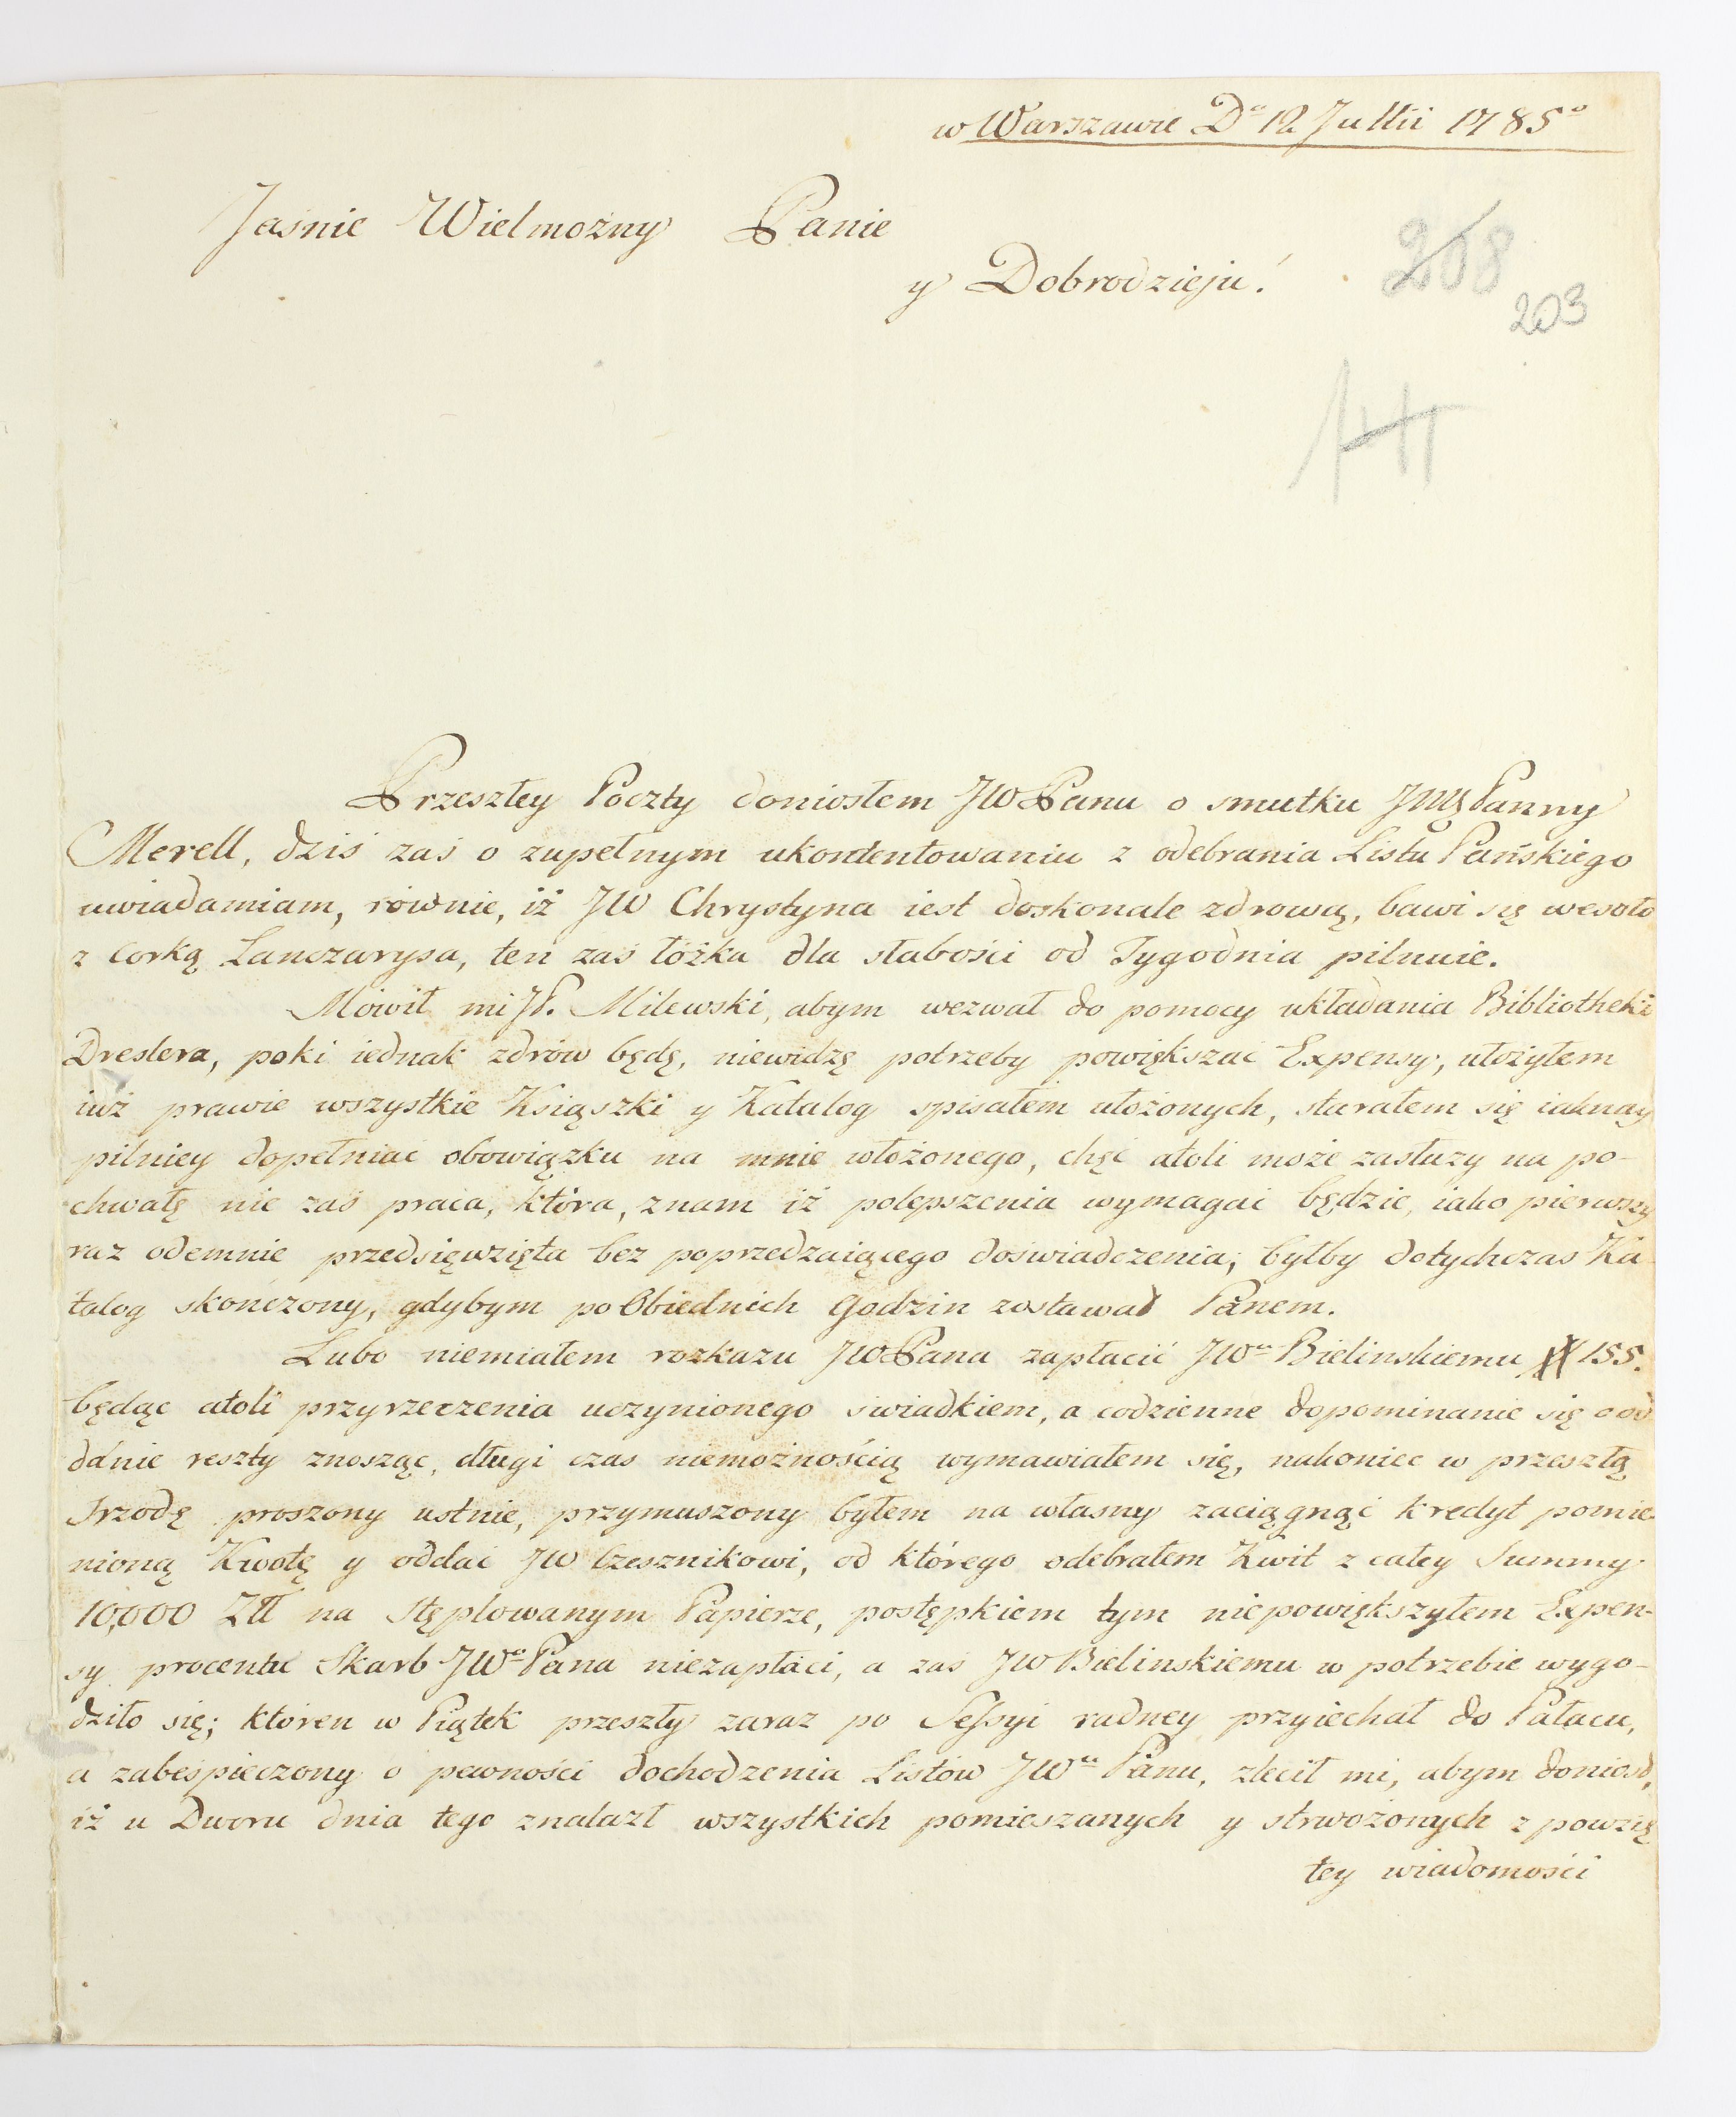 w Warszawie D° 12 Jullii 1785°
Jaśnie Wielmożny Panie
y Dobrodzieju!
208
203
Przeszłey Poczty doniosłem JWPanu o smutku JMę Panny
Merell, dziś zaś o zupełnym ukontentowaniu z odebrania Listu Pańskiego
uwiadamiam, rownie, iż JW Chrystyna iest doskonale zdrową, bawi się wesoło
z Corką Lanczarysa, ten zaś łóżka dla słabości od Tygodnia pilnuie.
Mowił mi JP. Milewski, abym wezwał do pomocy układania Bibliotheki
Dreslera, poki iednak zdrów będę, niewidzę potrzeby powiększać Expensy; ułożyłem
iuż prawie wszystkie Książki y Katalog spisałem ułożonych, starałem się iaknay
pilniey dopełniać obowiązku na mnie włożonego, chęć atoli może zasłuzy na po-
chwałę nie zaś praca, która, znam iż polepszenia wymagać będzie, iako pierwszy
raz odemnie przedsięwzięta bez poprzedzaiącego doświadczenia; byłby dotychczas Ka-
talog skończony, gdybym poObiednich Godzin zostawał Panem.
Lubo niemiałem rozkazu JWPana zapłacić JWu Bielinskiemu # 155.
będąc atoli przyrzeczenia uczynionego swiadkiem, a codzienne dopominanie się o od
danie reszty znosząc, długi czas niemożnością wymawiałem się, nakoniec w przeszłą
Srzodę proszony ustnie, przymuszony byłem na własny zaciągnąć kredyt pomie-
nioną Kwotę y oddać JW Czesznikowi, od którego odebrałem Kwit z całey Summy
10,000 Złł na stęplowanym Papierze, postępkiem tym niepowiększyłem Expen-
sy procentu Skarb JWo Pana niezapłaci, a zaś JW Bielinskiemu w potrzebie wygo-
dziło się; ktoren w Piątek przeszły zaraz po Sessyi radney przyiechał do Pałacu,
a zabespieczony o pewności dochodzenia Listów JWu Panu, zlecił mi, abym doniosł,
iż u Dworu dnia tego znalazł wszystkich pomieszanych y strwożonych z powzię
tey wiadomości